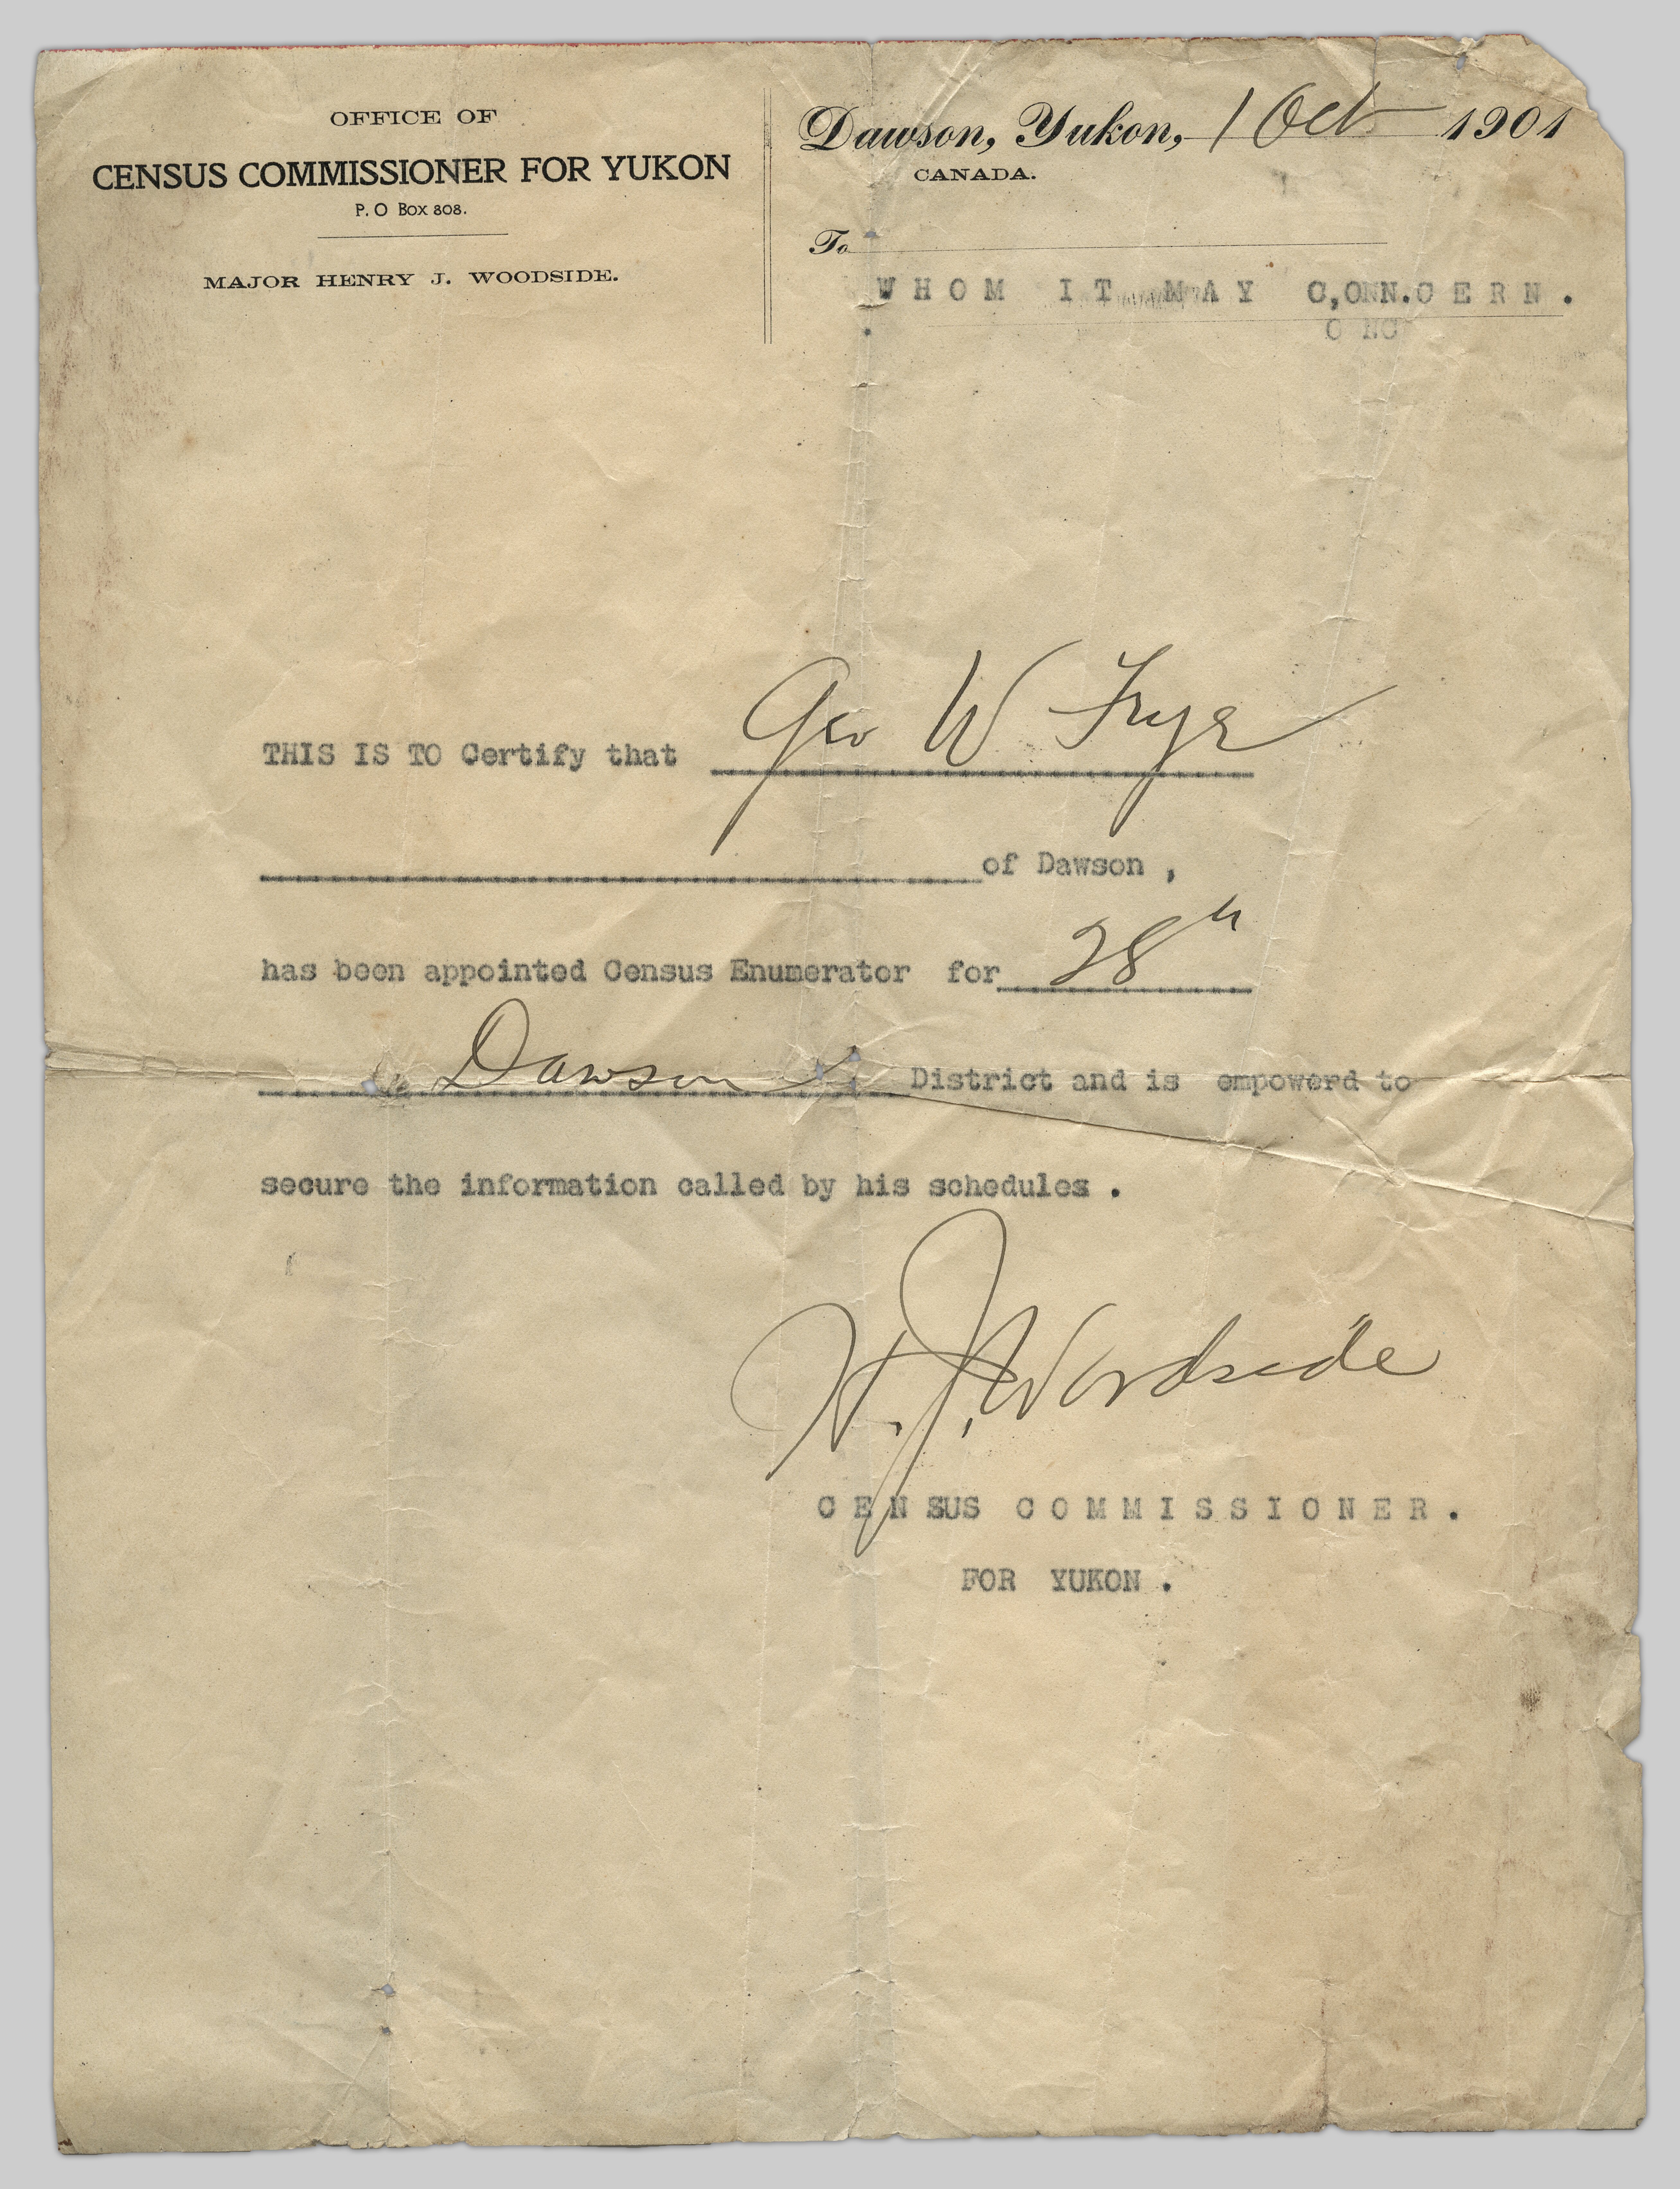 OFFICE OF
CENSUS COMMISSIONER FOR YUKON
P. O Box 808.
MAJOR HENRY J. WOODSIDE.
Dawson, Yukon, 1 Oct 1901
CANADA.
To
WHOM IT MAY C,ONN.CERN.
O NC
THIS IS TO Certify that Geo W Frye
of Dawson ,
has been appointed Census Enumerator for 28th
Dawson District and is empowerd to
secure the information called by his schedules .
H. J. Woodside
CENSUS COMMISSIONER.
FOR YUKON .